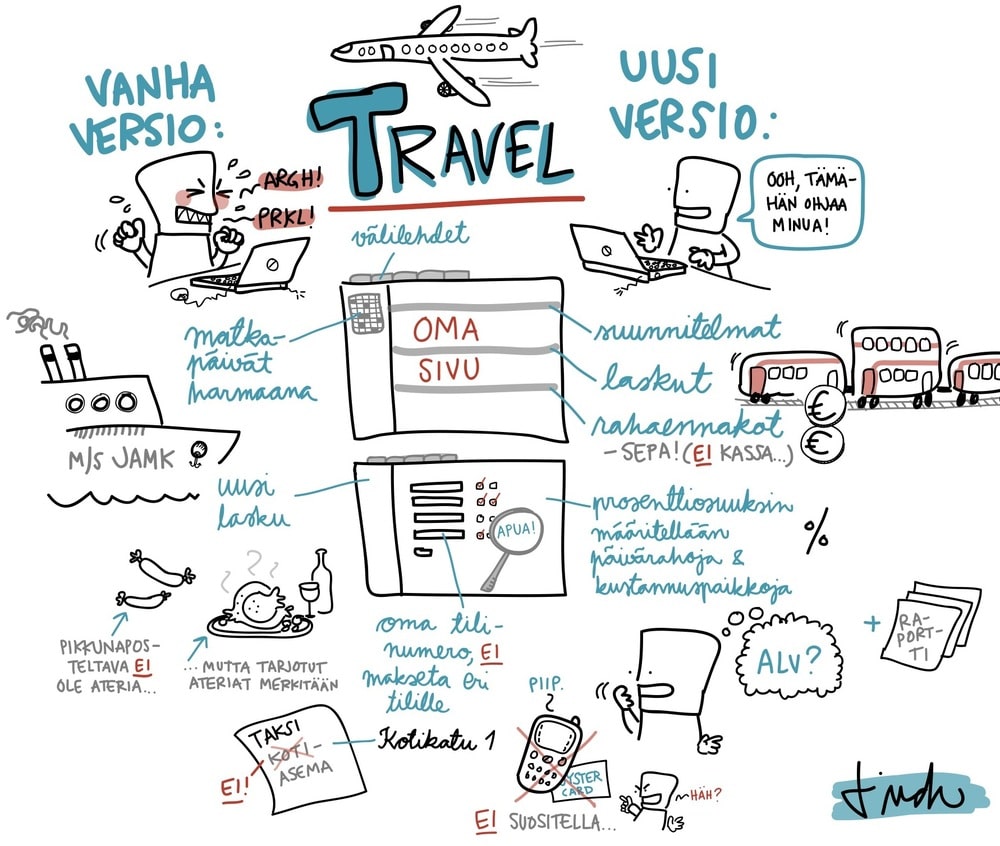 VANHA
VERSIO:
TRAVEL
UUSI
VERSIO:
ARGH!
PRKL!
OOH, TÄMÄ-
HÄN OHJAA
MINUA!
välilehdet
matka-
päivät
harmaana
OMA
SIVU
suunnitelmat
laskut
rahaennakot
- SEPA! (EI KASSA...)
€
€
M/S JAMK
uusi
lasku
APUA!
prosenttiosuuksin
määritellään
päivärahoja &
kustannuspaikkoja
%
PIKKUNAPOS-
TELTAVA EI
OLE ATERIA...
...MUTTA TARJOTUT
ATERIAT MERKITÄÄN
oma tili-
numero, EI
makseta eri
tilille
ALV?
+
RA-
PORT-
TI
TAKSI
KOTI-
ASEMA
EI!
Kotikatu 1
PIIP.
YSTER
CARD
EI SUOSITELLA...
HÄH?